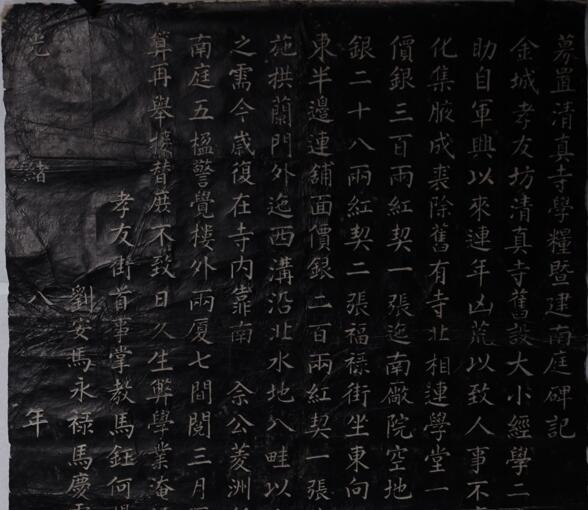 募置清真寺學糧暨建南庭碑記
金城孝友坊清真寺舊設大小經學二
助自軍興以來連年凶荒以致人事不
化集腋成裘除舊有寺北相連學堂一
價銀三百兩紅契一張迤南廠院空地
銀二十八兩紅契二張福祿街坐東向
東半邊連鋪面價銀二百兩紅契一張
施拱蘭門外迤西溝沿北水地八畦以
之需今歲復在寺內靠南 余公菱洲
南庭五楹警覺樓外兩廈七間閱三月
算再舉接替庶不致日久生弊學業淹
孝友街首事掌教馬鈺何
劉安馬永祿馬慶
光緒八年